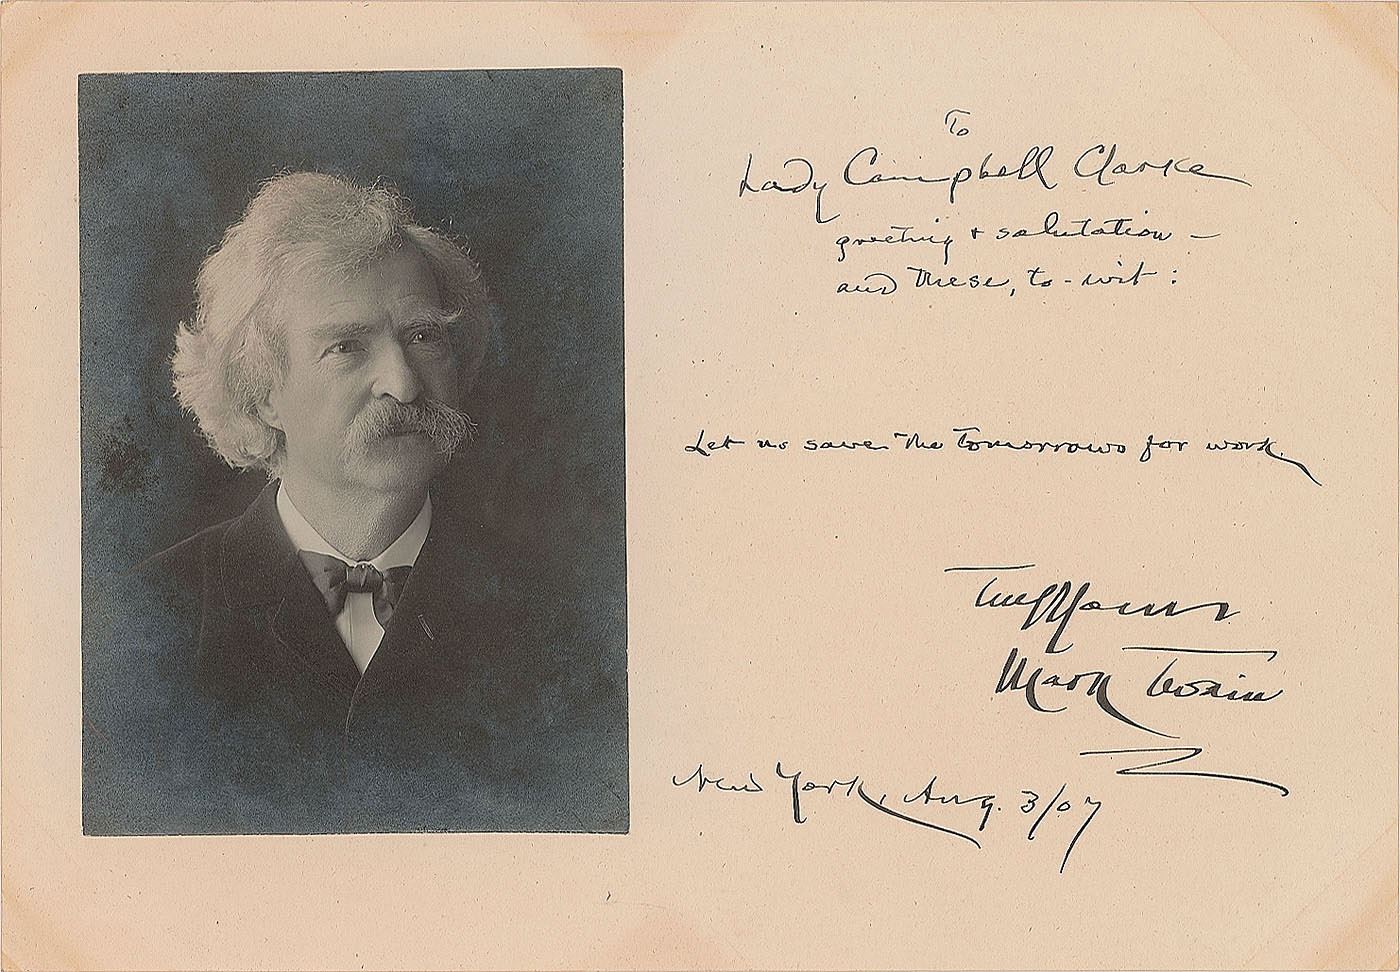 To
Lady Campbell Clarke
greeting & salutation –
and these, to-wit:
Let us save the tomorrows for work.
Truly Yours
Mark Twain
New York, Aug. 3/07